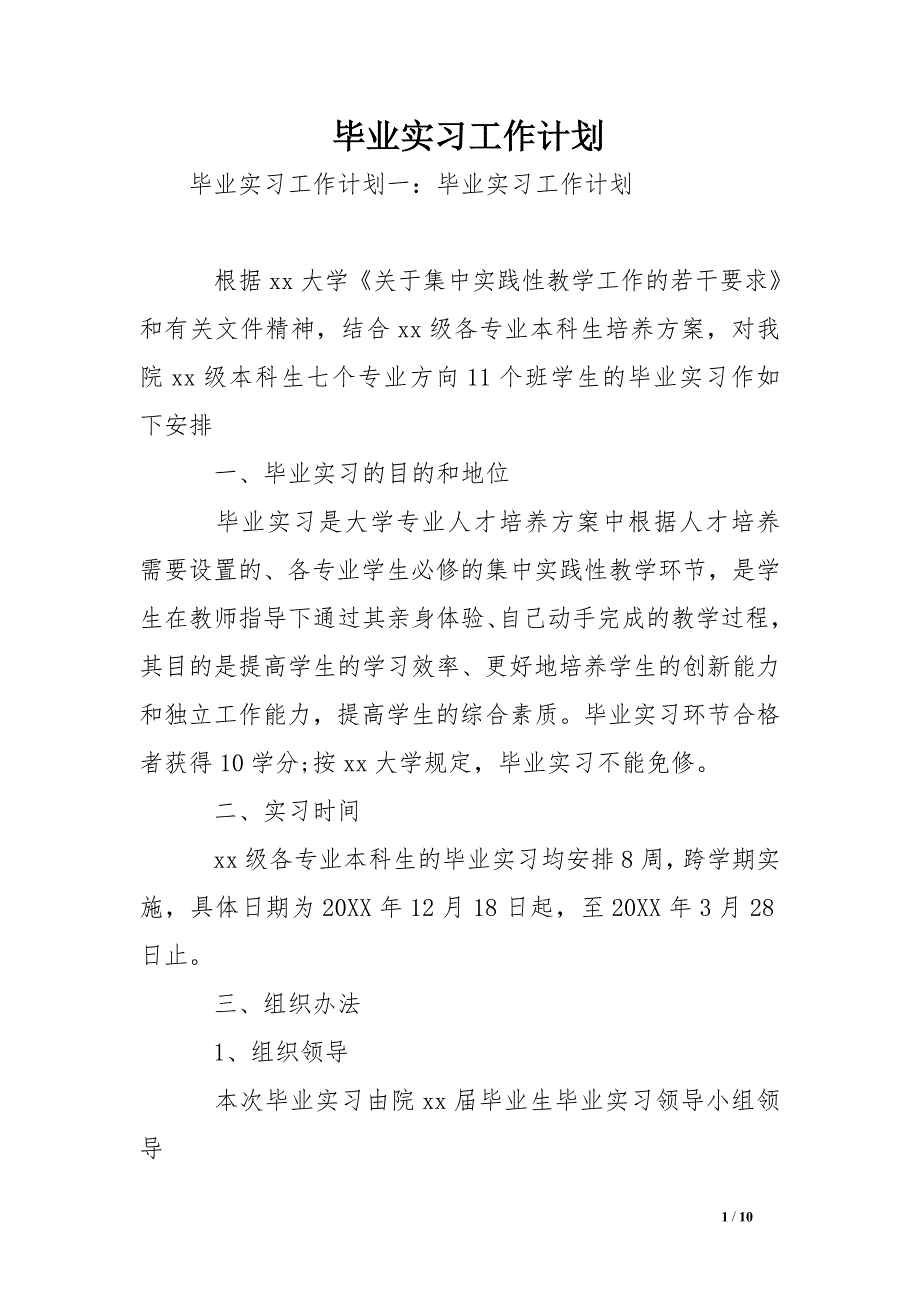 毕业实习工作计划
毕业实习工作计划一：毕业实习工作计划
根据 xx 大学《关于集中实践性教学工作的若干要求》
和有关文件精神，结合 xx 级各专业本科生培养方案，对我
院 xx 级本科生七个专业方向 11 个班学生的毕业实习作如
下安排
一、毕业实习的目的和地位
毕业实习是大学专业人才培养方案中根据人才培养
需要设置的、各专业学生必修的集中实践性教学环节，是学
生在教师指导下通过其亲身体验、自己动手完成的教学过程，
其目的是提高学生的学习效率、更好地培养学生的创新能力
和独立工作能力，提高学生的综合素质。毕业实习环节合格
者获得 10 学分;按 xx 大学规定，毕业实习不能免修。
二、实习时间
xx 级各专业本科生的毕业实习均安排 8 周，跨学期实
施，具体日期为 20XX 年 12 月 18 日起，至 20XX 年 3 月 28
日止。
三、组织办法
1、组织领导
本次毕业实习由院 xx 届毕业生毕业实习领导小组领
导
1 / 10